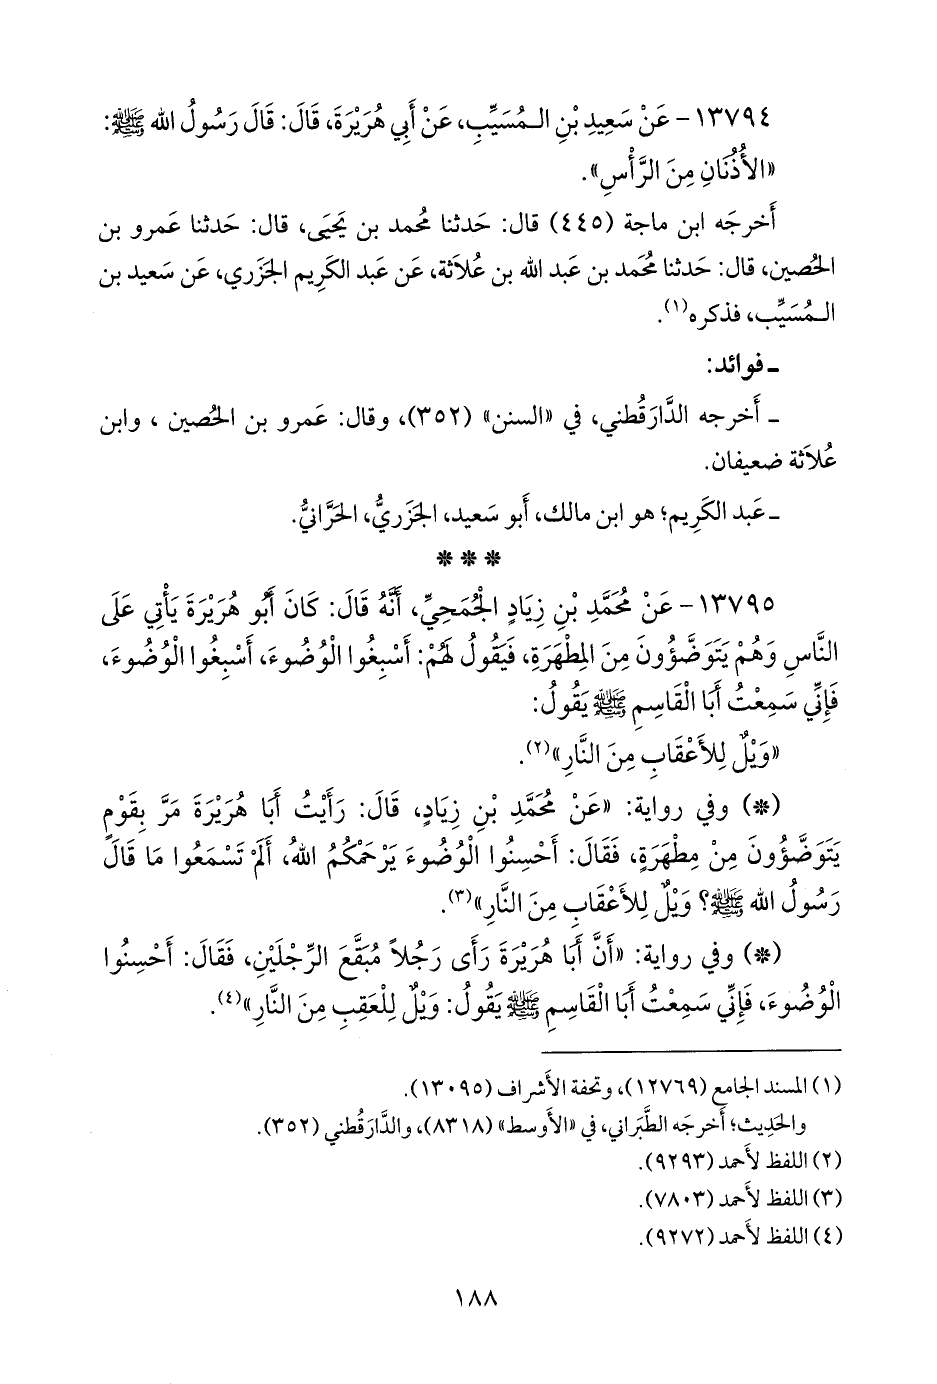 ١٣٧٩٤- عَنْ سَعِيدِ بْنِ الـمُسَيِّبِ، عَنْ أَبِي هُرَيْرَةَ، قَالَ: قَالَ رَسُولُ الله ﷺ:
«الأُذُنَانِ مِنَ الرَّأْسِ».
أَخرجَه ابن ماجة (٤٤٥) قال: حَدثنا مُحمد بن يَحيَى، قال: حَدثنا عَمرو بن
الحُصين، قال: حَدثنا مُحَمد بن عَبد الله بن عُلاَثة، عَن عَبد الكَريم الجَزَري، عَن سَعيد بن
الـمُسَيِّب، فذكره(١).
ـ فوائد:
ـ أَخرجه الدَّارَقُطني، في «السنن» (٣٥٢)، وقال: عَمرو بن الحُصين ، وابن
عُلاَثة ضعيفان.
ـ عَبد الكَريم؛ هو ابن مالك، أَبو سَعيد، الجَزَريُّ، الحَرَّانيُّ.
* * *
١٣٧٩٥- عَنْ مُحَمَّدِ بْنِ زِيَادٍ الْجُمَحِيِّ، أَنَّهُ قَالَ: كَانَ أَبُو هُرَيْرَةَ يَأْتِي عَلَى
النَّاسِ وَهُمْ يَتَوَضَّؤُونَ مِنَ المِطْهَرَةِ، فَيَقُولُ لَهُمْ: أَسْبِغُوا الْوُضُوءَ، أَسْبِغُوا الْوُضُوءَ،
فَإِنِّي سَمِعْتُ أَبَا الْقَاسِمِ ﷺ يَقُولُ:
«وَيْلٌ لِلأَعْقَابِ مِنَ النَّارِ»(٢).
(*) وفي رواية: «عَنْ مُحَمَّدِ بْنِ زِيَادٍ، قَالَ: رَأَيْتُ أَبَا هُرَيْرَةَ مَرَّ بِقَوْمٍ
يَتَوَضَّؤُونَ مِنْ مِطْهَرَةٍ، فَقَالَ: أَحْسِنُوا الْوُضُوءَ يَرْحَمْكُمُ اللهُ، أَلَمْ تَسْمَعُوا مَا قَالَ
رَسُولُ الله ﷺ؟ وَيْلٌ لِلأَعْقَابِ مِنَ النَّارِ»(٣).
(*) وفي رواية: «أَنَّ أَبَا هُرَيْرَةَ رَأَى رَجُلاً مُبَقَّعَ الرِّجْلَيْنِ، فَقَالَ: أَحْسِنُوا
الْوُضُوءَ، فَإِنِّي سَمِعْتُ أَبَا الْقَاسِمِ ﷺ يَقُولُ: وَيْلٌ لِلْعَقِبِ مِنَ النَّارِ»(٤).
(١) المسند الجامع (١٢٧٦٩)، وتحفة الأَشراف (١٣٠٩٥).
والحَدِيث؛ أَخرجَه الطَّبَراني، في «الأَوسط» (٨٣١٨)، والدَّارَقُطني (٣٥٢).
(٢) اللفظ لأَحمد (٩٢٩٣).
(٣) اللفظ لأَحمد (٧٨٠٣).
(٤) اللفظ لأَحمد (٩٢٧٢).
١٨٨